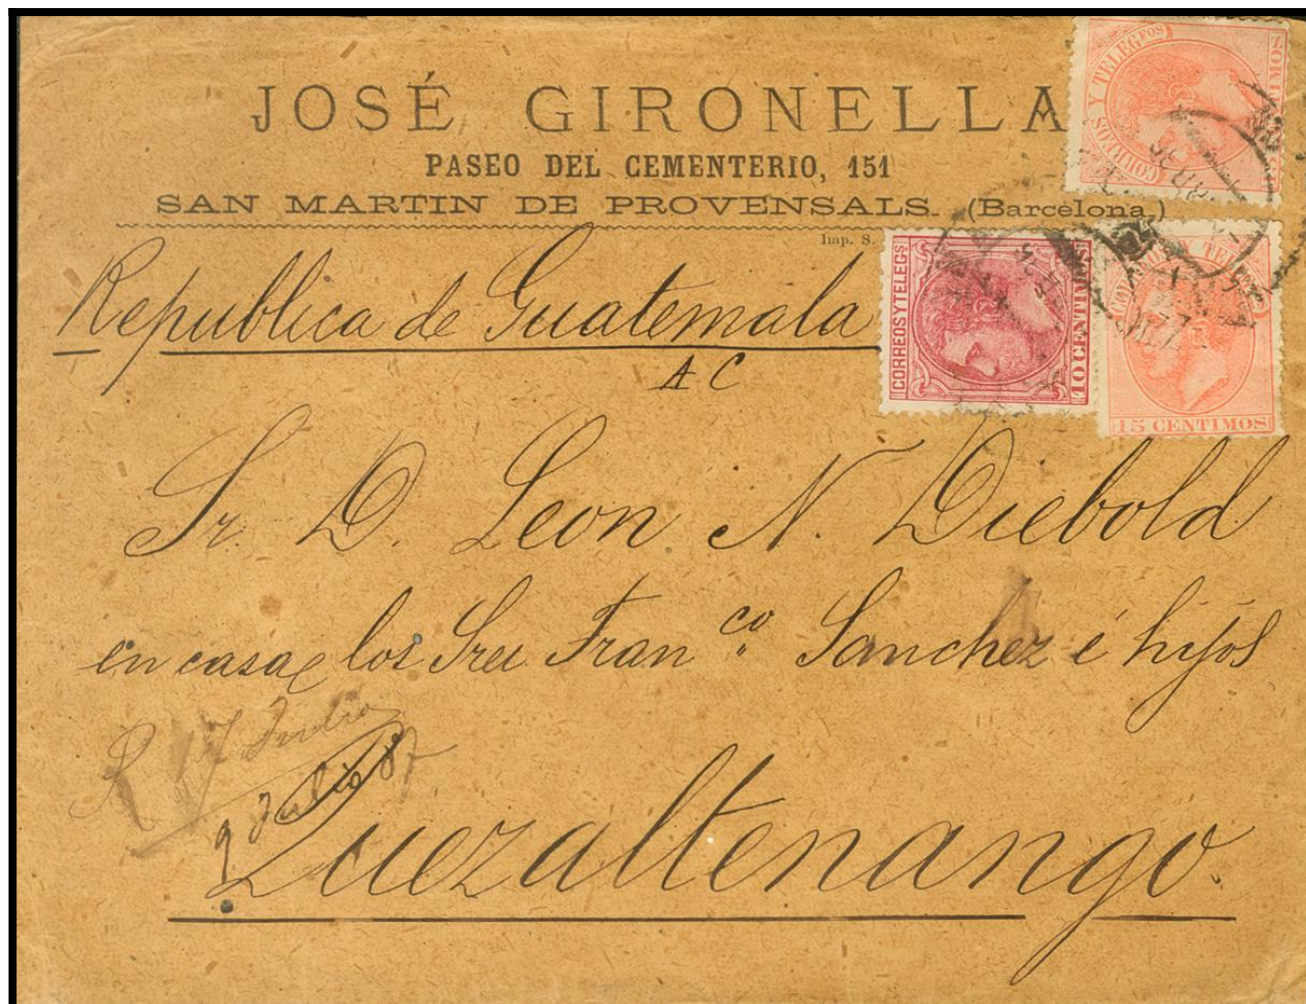 JOSÉ GIRONELLA
PASEO DEL CEMENTERIO, 151
SAN MARTIN DE PROVENSALS. (Barcelona)
Imp. S.
CORREOS Y TELEGFOS
CORREOS Y TELEGS
10 CENTIMOS
15 CENTIMOS
Republica de Guatemala
A C
Sr. D. Leon N. Diebold
en casa los Sres Franco Sanchez é hijos
R 17 Julio
9 Julio 87.
Quezaltenango.